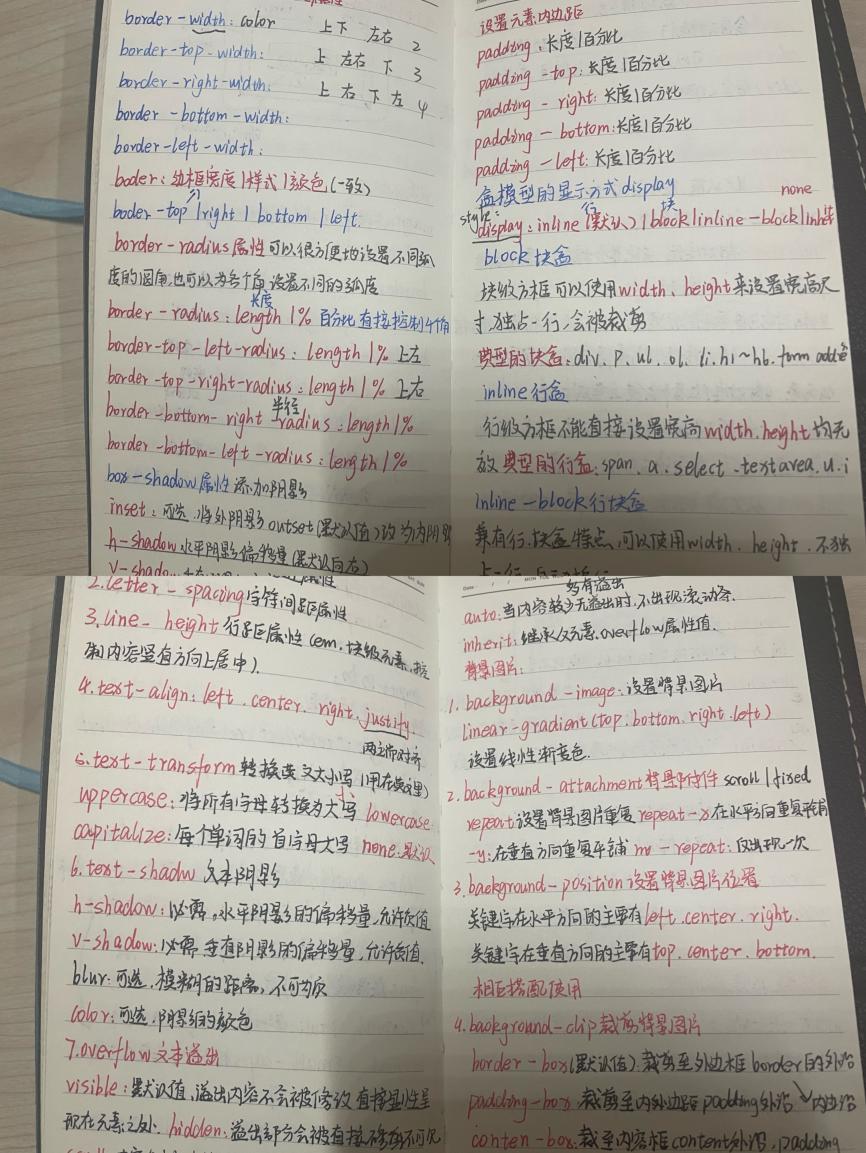 border-width: color 上下 左右 2
border-top-width: 上 左右 下 3
border-right-width: 上 右 下 左 4
border-bottom-width:
border-left-width:
boder: 边框宽度|样式|颜色(一致)
boder-top|right|bottom|left.
border-radius属性可以很方便地设置不同弧
度的圆角,也可以为各个角设置不同的弧度
长度
border-radius: length|% 百分比直接控制4个角
border-top-left-radius: length|% 上左
border-top-right-radius: length|% 上右
半径
border-bottom-right-radius: length|%
border-bottom-left-radius: length|%
box-shadow属性 添加阴影
inset: 可选,将外阴影outset(默认值)改为内阴影
h-shadow水平阴影偏移量(默认向右)
v-shadow
设置元素内边距
padding: 长度|百分比
padding-top: 长度|百分比
padding-right: 长度|百分比
padding-bottom: 长度|百分比
padding-left: 长度|百分比
盒模型的显示方式display none
style: 行 块
display: inline(默认)|block|inline-block|inherit
block 块盒
块级方框可以使用width、height来设置宽高尺
寸,独占一行,会被裁剪
典型的块盒: div. p. ul. ol. li. h1~h6. form
inline行盒
行级方框不能直接设置宽高width.height均无
效 典型的行盒: span. a. select. textarea. u. i
inline-block行块盒
兼有行.块盒特点.可以使用width. height. 不独
2.letter-spacing字符间距属性
3.line-height行距属性(em.块级元素,控
制内容竖直方向上居中).
4.text-align: left. center. right. justify
两边对齐
5.text-transform转换英文大小写(用在英文里)
uppercase: 将所有字母转换为大写 lowercase 小
capitalize: 每个单词的首字母大写 none: 默认
6.text-shadw 文本阴影
h-shadow: 必需。水平阴影的偏移量,允许负值
v-shadow: 必需 垂直阴影的偏移量,允许负值.
blur: 可选,模糊的距离,不可为负
color: 可选,阴影的颜色
7.overflow文本溢出
visible: 默认值,溢出内容不会被修改 直接显性呈
现在元素之外. hidden: 溢出部分会被直接 不可见
多有溢出
auto: 当内容较少无溢出时,不出现滚动条.
inherit: 继承父元素.overflow属性值.
背景图片:
1.background-image:设置背景图片
linear-gradient(top.bottom.right.left)
设置线性渐变色.
2.background-attachment背景附件 scroll|fixed
repeat设置背景图片重复 repeat-x在水平方向重复平铺
-y:在垂直方向重复平铺 no-repeat: 仅出现一次
3.background-position设置背景图片位置
关键字在水平方向的主要有left.center.right.
关键字在垂直方向的主要有top.center.bottom.
相互搭配使用
4.background-clip裁剪背景图片
border-box(默认值).裁剪至外边框border的外沿
padding-box 裁剪至内外边距padding外沿 内边沿
conten-box.裁至内容框content外沿,padding